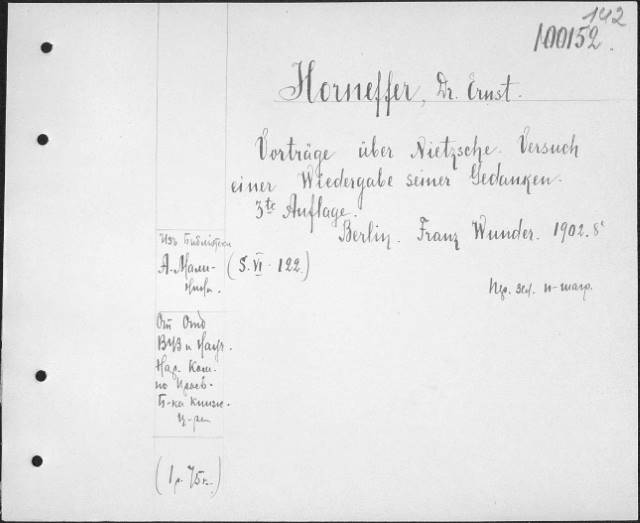 142
100152.
Horneffer, Dr. Ernst.
Vorträge über Nietzsche. Versuch
einer Wiedergabe seiner Gedanken.
3te Auflage.
Berlin. Franz Wunder. 1902. 8°
Изъ Библіотеки
А. Мали-
(S. VI + 122.)
От Отд
ВУЗ и Науч.
Нар. Ком.
по Просв.
Б-ка книж.
(1 р. 75 к.)